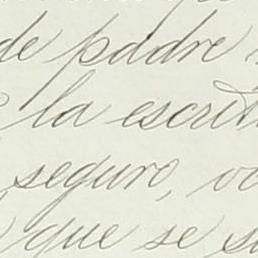 de padre
la escrit
seguro, vo
que se s